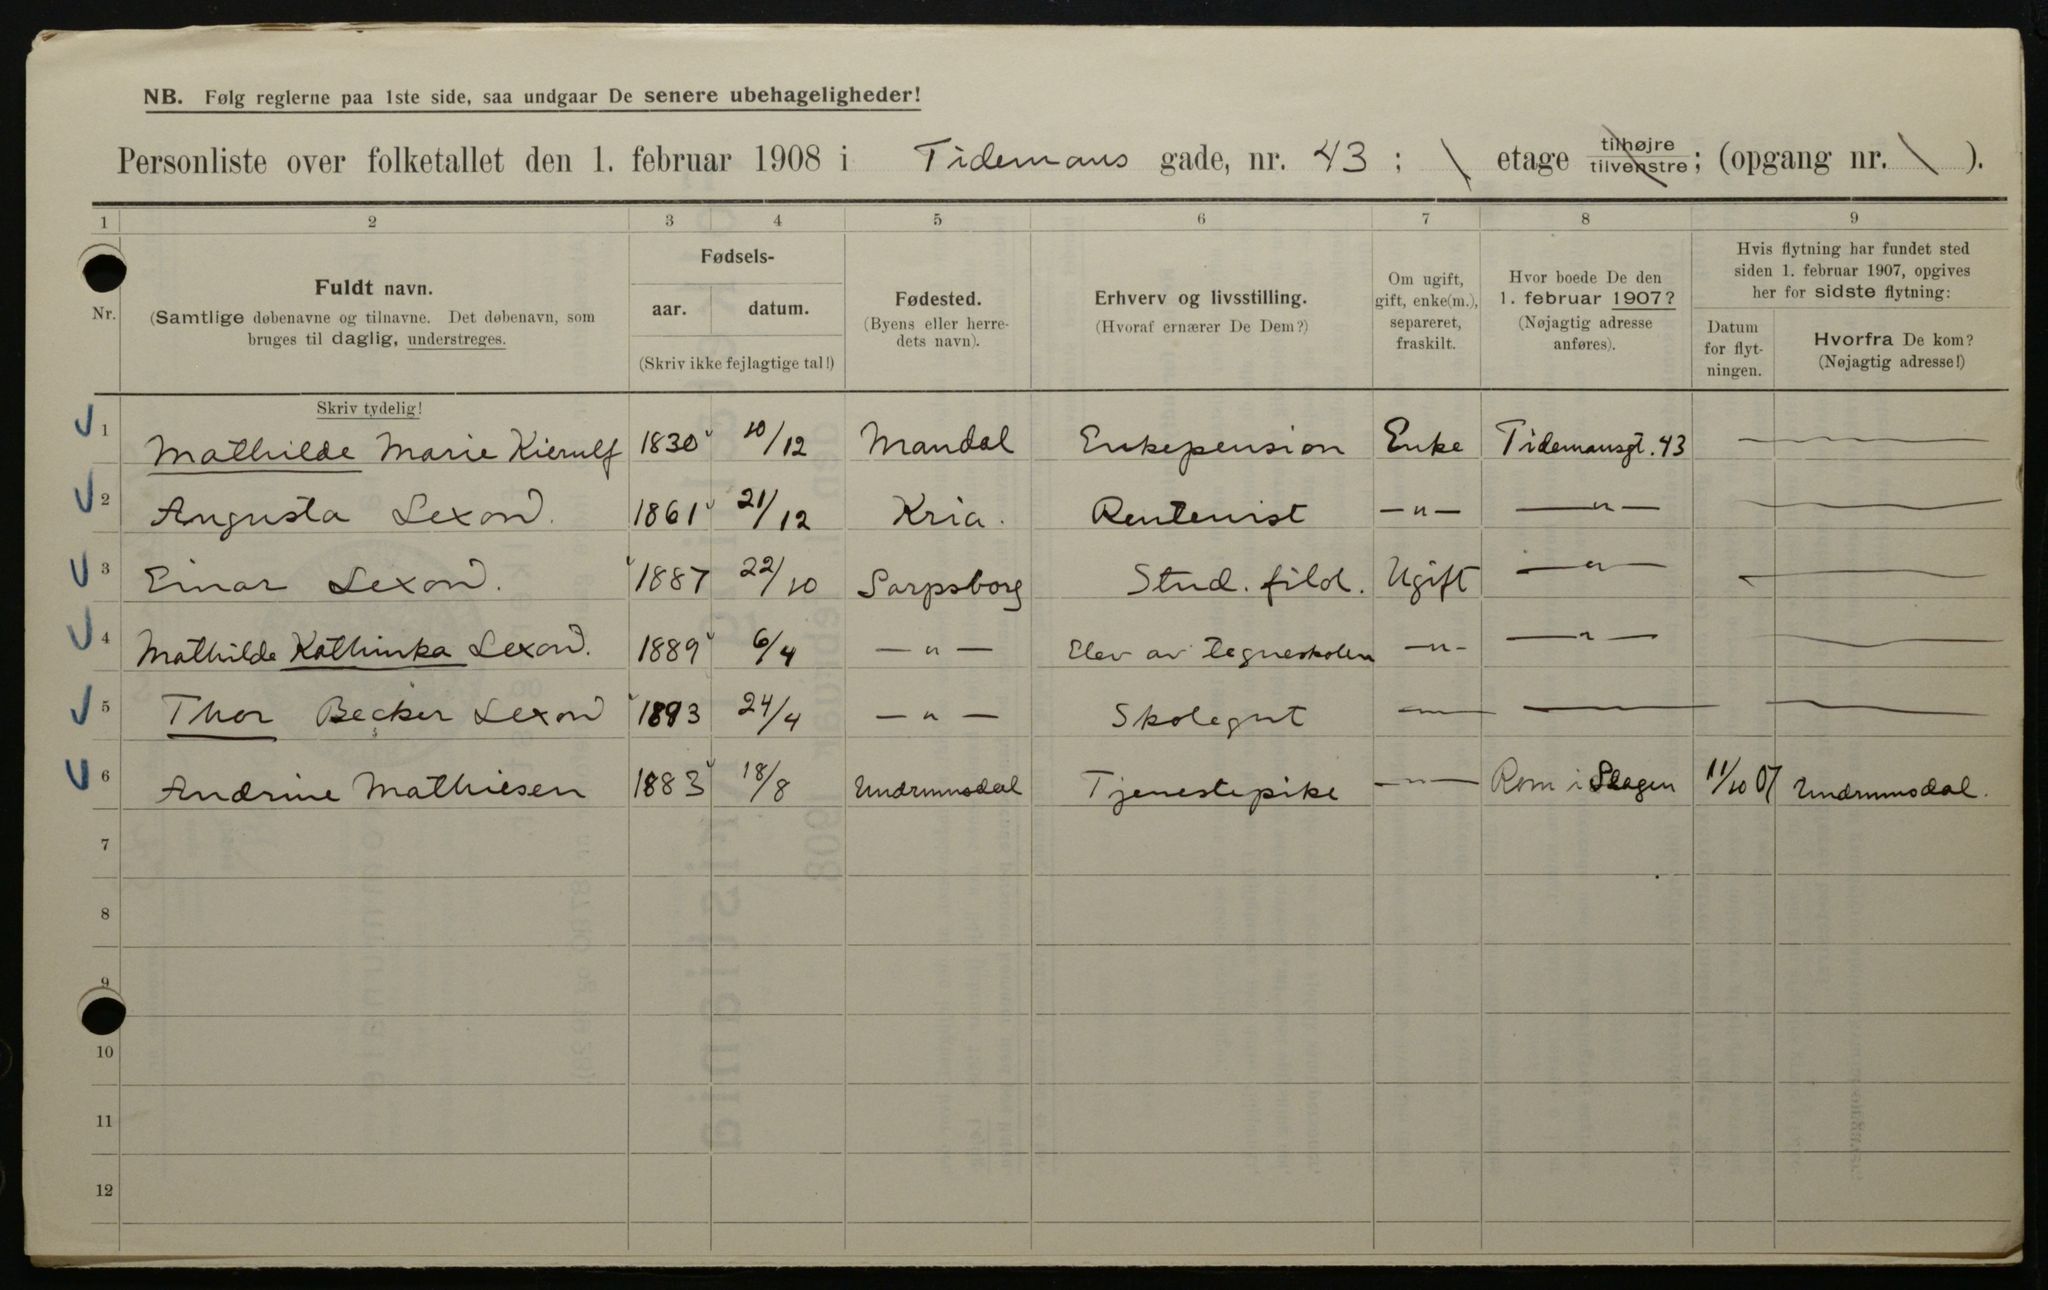 NB. Følg reglerne paa 1ste side, saa undgaar De senere ubehageligheder!
Personliste over folketallet den 1. februar 1908 i Tidemans gade, nr. 43 ; \ etage tilhøjre tilvenstre ; (opgang nr. \ ).
1 2 3 4 5 6 7 8 9
Nr.
Fuldt navn.
(Samtlige døbenavne og tilnavne. Det døbenavn, som
bruges til daglig, understreges.
Skriv tydelig!
Fødsels-
aar. datum.
(Skriv ikke fejlagtige tal!)
Fødested.
(Byens eller herre-
dets navn).
Erhverv og livsstilling.
(Hvoraf ernærer De Dem?)
Om ugift,
gift, enke(m.),
separeret,
fraskilt.
Hvor boede De den
1. februar 1907?
(Nøjagtig adresse
anføres).
Hvis flytning har fundet sted
siden 1. februar 1907, opgives
her for sidste flytning:
Datum
for flyt-
ningen.
Hvorfra De kom?
(Nøjagtig adresse!)
1 Mathilde Marie Kierulf 1830 10/12 Mandal Enkepension Enke Tidemansgt. 43
2 Augusta Lexow. 1861 21/12 Kria. Rentenist —"— —"—
3 Einar Lexow. 1887 22/10 Sarpsborg Stud. filol. Ugift —"—
4 Mathilde Kathinka Lexow. 1889 6/4 —"— Elev av tegneskolen —"— —"—
5 Thor Becker Lexow 1893 24/4 —"— Skolegut —"— —
6 Andrine Mathiesen 1883 18/8 Undrumsdal Tjenestepike —"— Rom i Slagen 11/10 07 Undrumsdal.
7
8
9
10
11
12